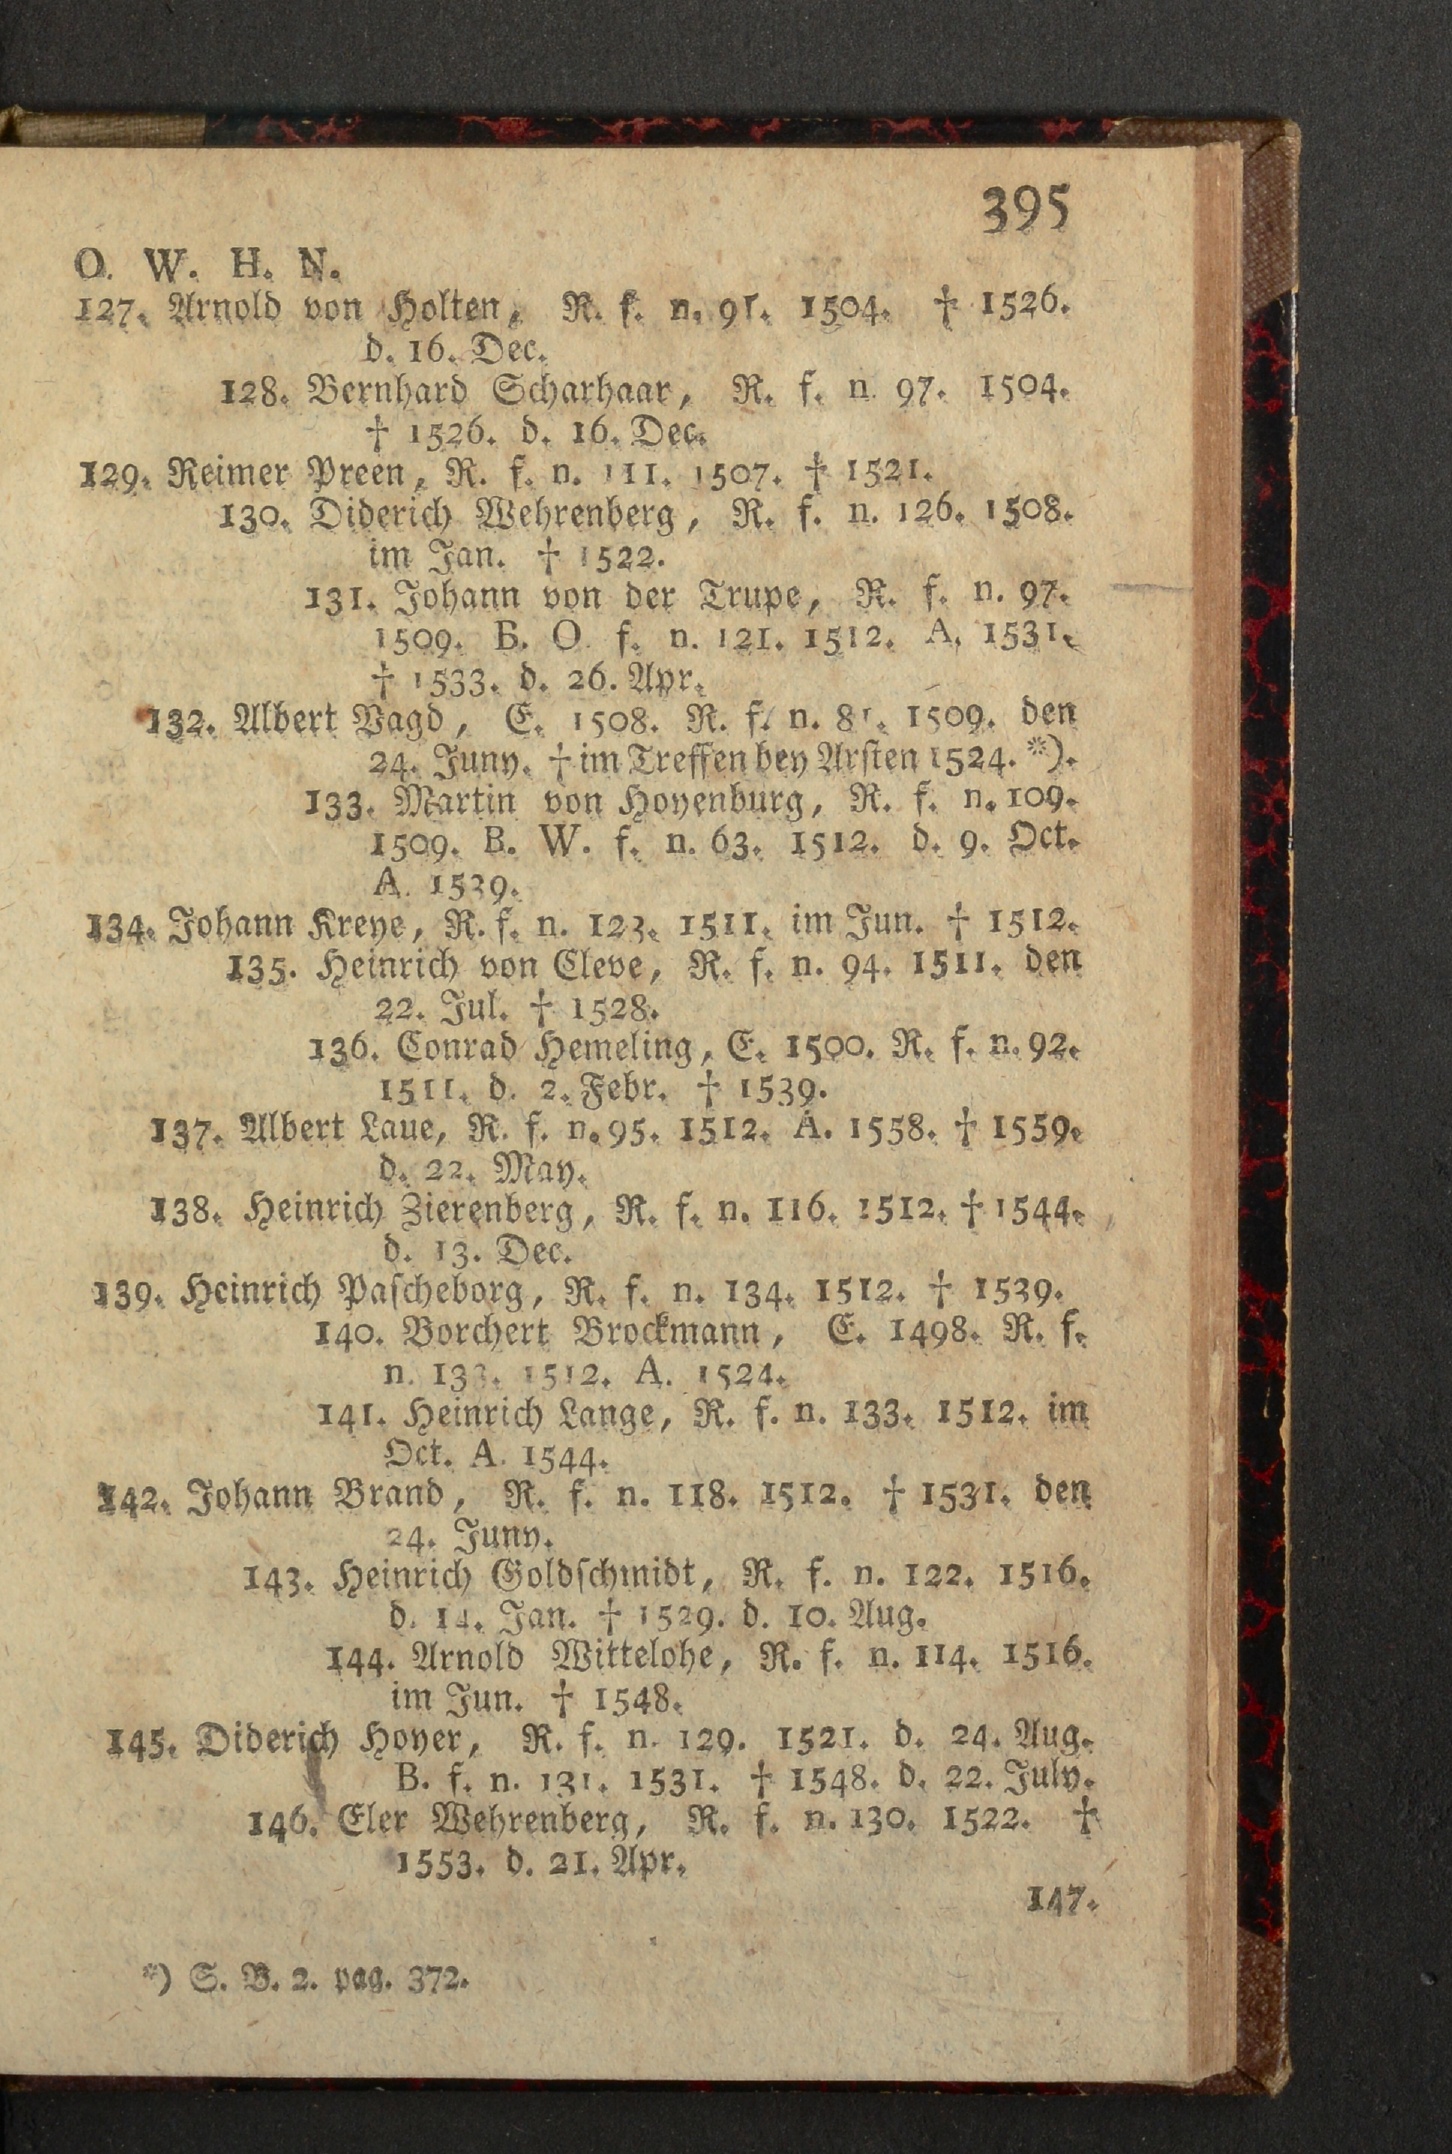 395
O. W. H. N.
127. Arnold von Holten, R. f. n. 91. 1504. † 1526.
d. 16. Dec.
128. Bernhard Scharhaar, R. f. n. 97. 1504.
† 1526. d. 16. Dec.
129. Reimer Preen, R. f. n. 111. 1507. † 1521.
130. Diderich Wehrenberg, R. f. n. 126. 1508.
im Jan. † 1522.
131. Johann von der Trupe, R. f. n. 97.
1509. B. O. f. n. 121. 1512. A. 1531.
† 1533. d. 26. Apr.
132. Albert Vagd, E. 1508. R. f. n. 81. 1509. den
24. Juny. † im Treffen bey Arsten 1524. *).
133. Martin von Hoyenburg, R. f. n. 109.
1509. B. W. f. n. 63. 1512. d. 9. Oct.
A. 1539.
134. Johann Kreye, R. f. n. 123. 1511. im Jun. † 1512.
135. Heinrich von Cleve, R. f. n. 94. 1511. den
22. Jul. † 1528.
136. Conrad Hemeling, E. 1500. R. f. n. 92.
1511. d. 2. Febr. † 1539.
137. Albert Laue, R. f. n. 95. 1512. A. 1558. † 1559.
d. 22. May.
138. Heinrich Zierenberg, R. f. n. 116. 1512. † 1544.
d. 13. Dec.
139. Heinrich Pascheborg, R. f. n. 134. 1512. † 1539.
140. Borchert Brockmann, E. 1498. R. f.
n. 133. 1512. A. 1524.
141. Heinrich Lange, R. f. n. 133. 1512. im
Oct. A. 1544.
142. Johann Brand, R. f. n. 118. 1512. † 1531. den
24. Juny.
143. Heinrich Goldschmidt, R. f. n. 122. 1516.
d. 14. Jan. † 1529. d. 10. Aug.
144. Arnold Wittelohe, R. f. n. 114. 1516.
im Jun. † 1548.
145. Diderich Hoyer, R. f. n. 129. 1521. d. 24. Aug.
B. f. n. 131. 1531. † 1548. d. 22. July.
146. Eler Wehrenberg, R. f. n. 130. 1522. †
1553. d. 21. Apr.
147.
*) S. B. 2. pag. 372.